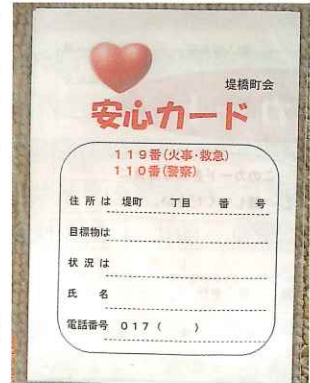 堤橋町会
安心カード
119番(火事・救急)
110番(警察)
住所は 堤町 丁目 番 号
目標物は
状況は
氏 名
電話番号 017( )